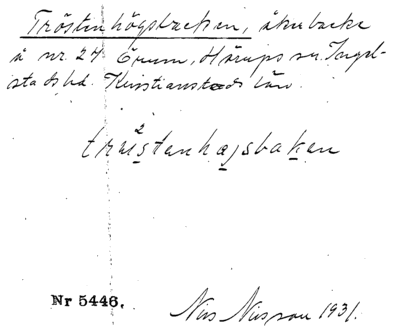 Tröstenhögsbacken, åkerbacke
å nr. 24 Örum, Hörups sn. Ingel-
stads hd. Kristianstads län.
2
träistenhøgsbakan
Nr 5446.
Nils Nilsson 1931.